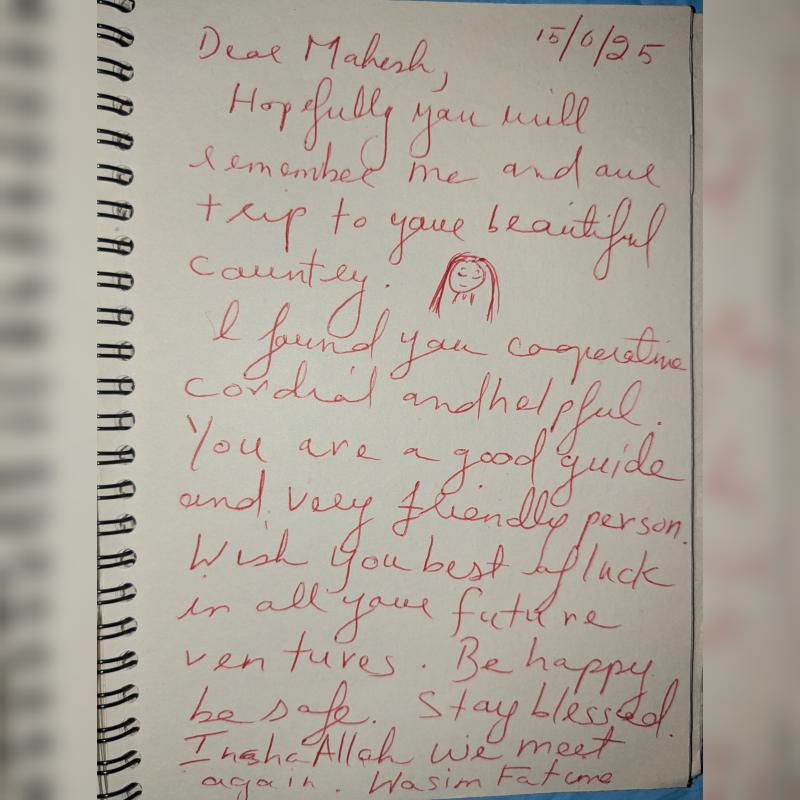 15/6/25
Dear Mahesh,
Hopefully you will
remember me and our
trip to your beautiful
country.
I found you cooperative
cordial and helpful.
You are a good guide
and very friendly person.
Wish you best of luck
in all your future
ventures. Be happy
be safe. Stay blessed.
InshaAllah we meet
again. Wasim Fatima